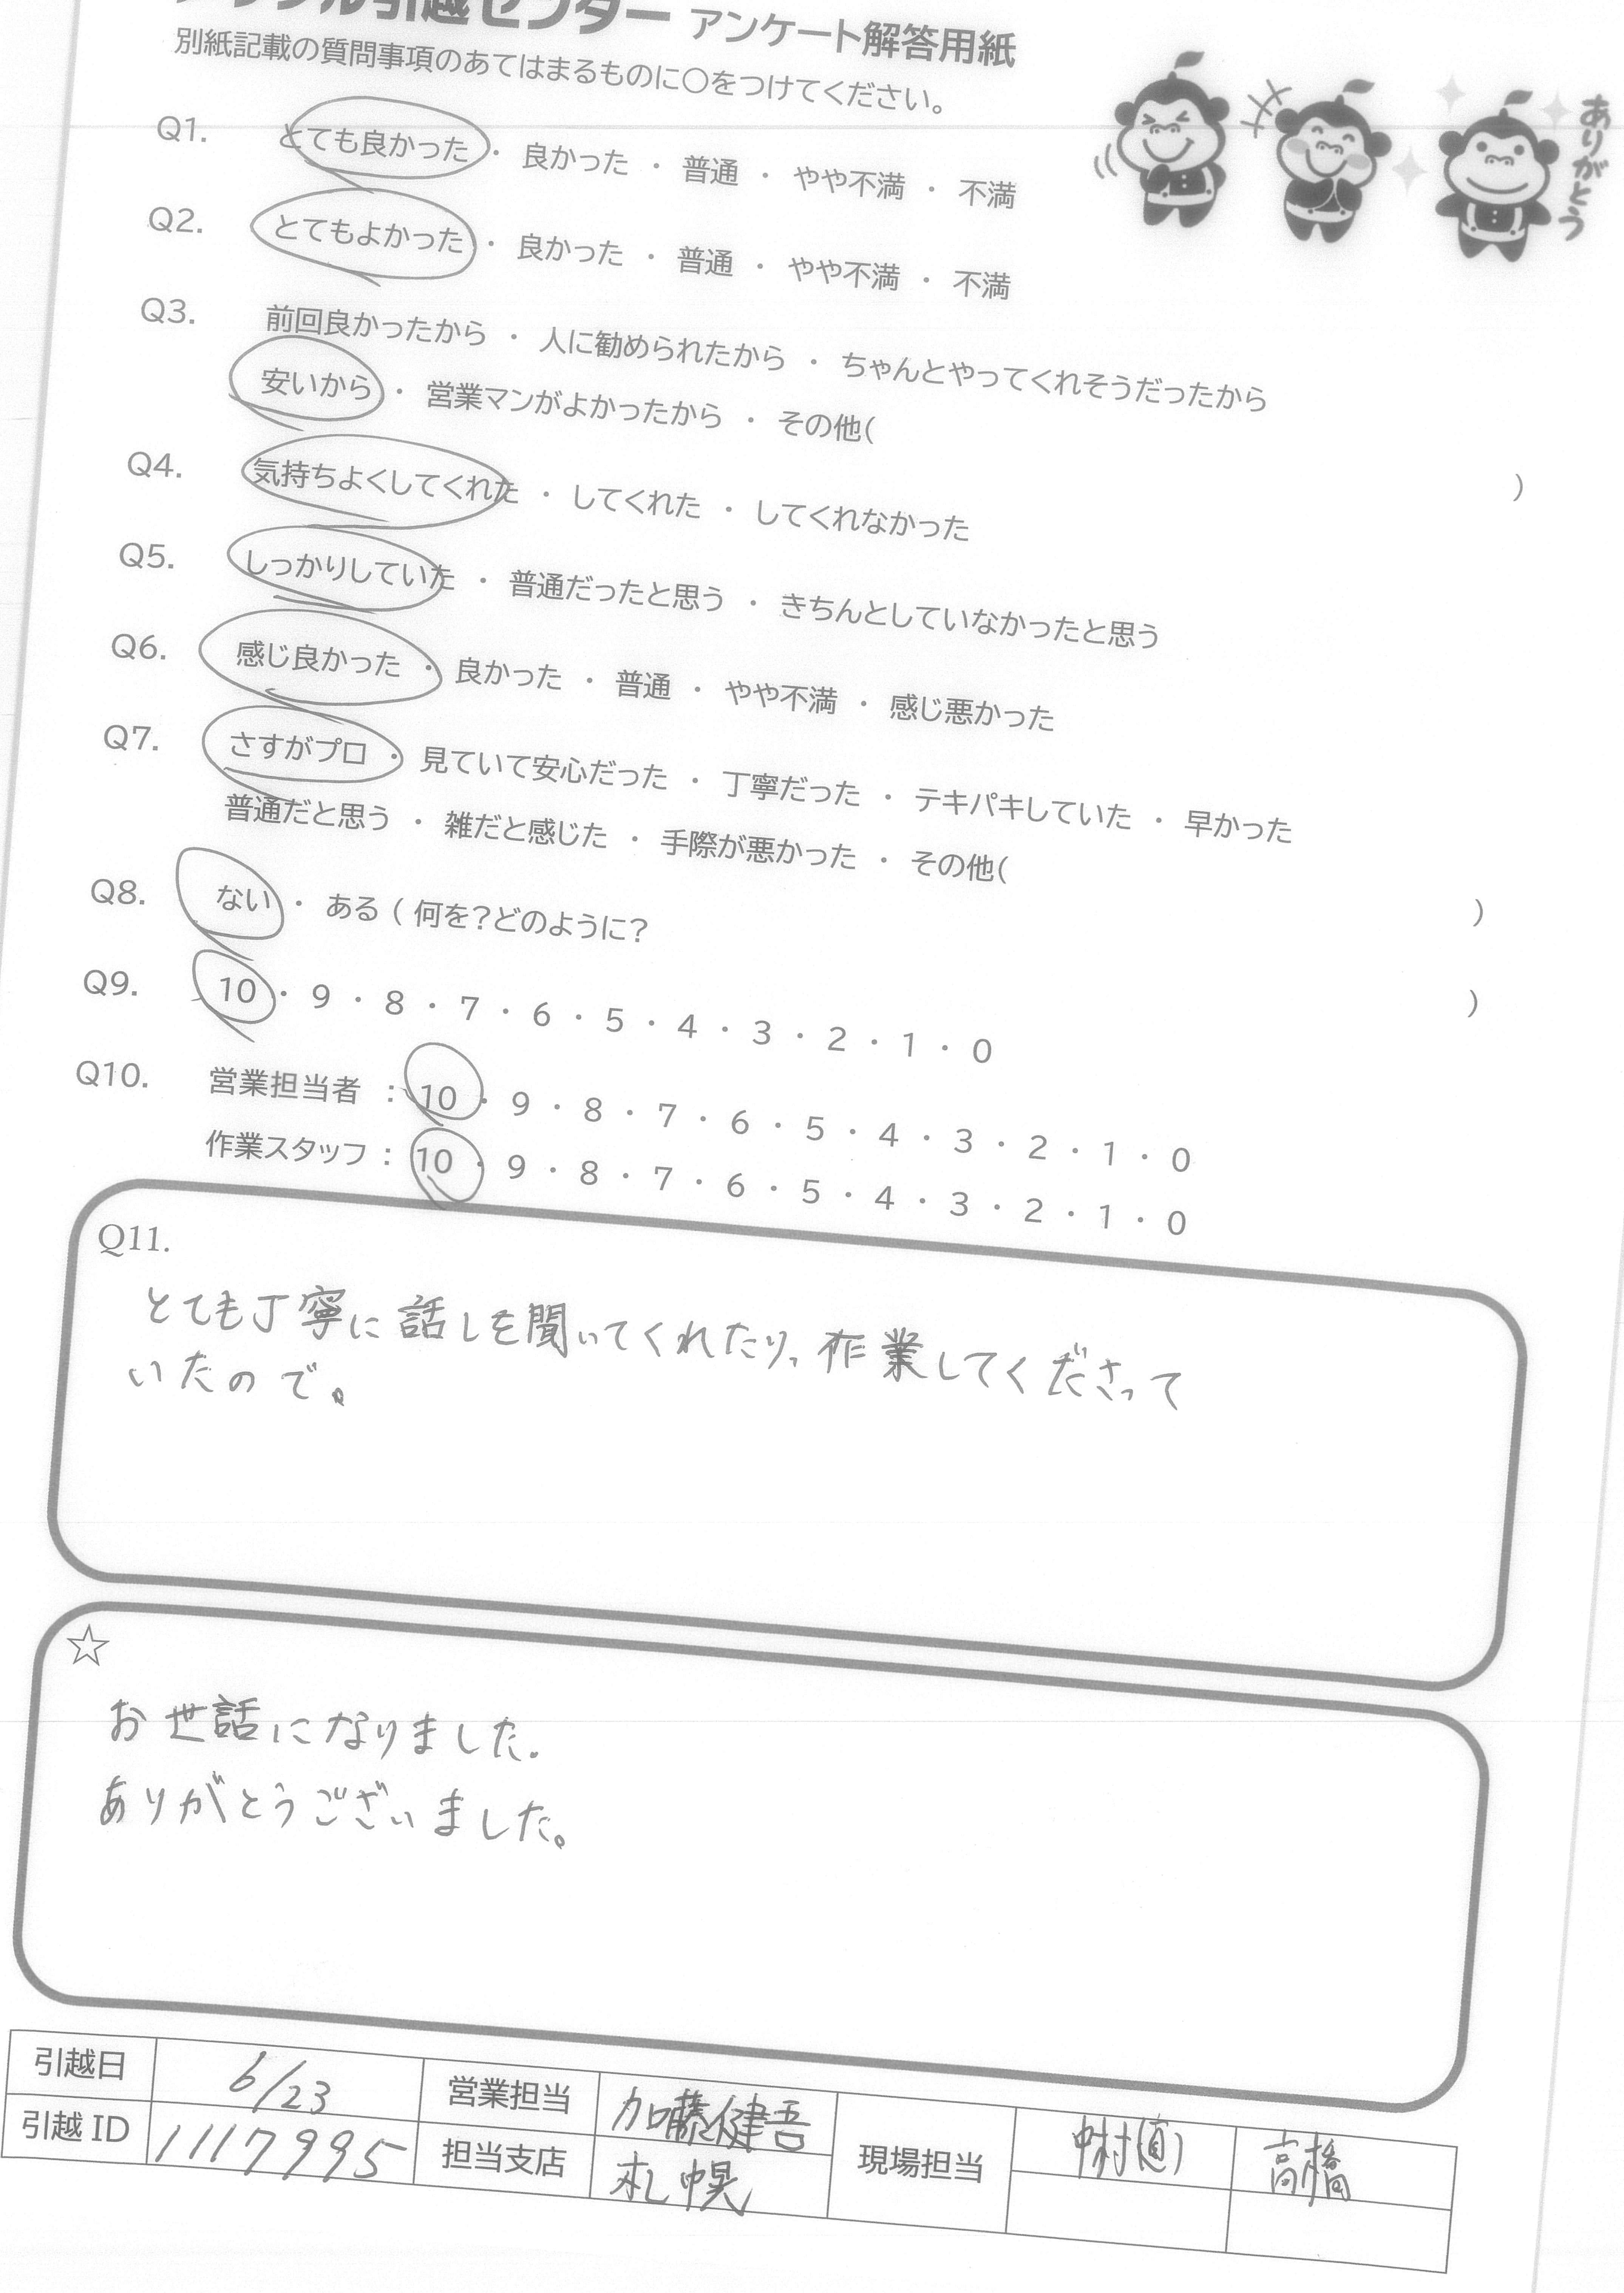 引越センター アンケート解答用紙
別紙記載の質問事項のあてはまるものに〇をつけてください。
ありがとう
Q1. とても良かった ・ 良かった ・ 普通 ・ やや不満 ・ 不満
Q2. とてもよかった ・ 良かった ・ 普通 ・ やや不満 ・ 不満
Q3. 前回良かったから ・ 人に勧められたから ・ ちゃんとやってくれそうだったから
安いから ・ 営業マンがよかったから ・ その他( )
Q4. 気持ちよくしてくれた ・ してくれた ・ してくれなかった
Q5. しっかりしていた ・ 普通だったと思う ・ きちんとしていなかったと思う
Q6. 感じ良かった ・ 良かった ・ 普通 ・ やや不満 ・ 感じ悪かった
Q7. さすがプロ ・ 見ていて安心だった ・ 丁寧だった ・ テキパキしていた ・ 早かった
普通だと思う ・ 雑だと感じた ・ 手際が悪かった ・ その他( )
Q8. ない ・ ある ( 何を?どのように? )
Q9. 10 ・ 9 ・ 8 ・ 7 ・ 6 ・ 5 ・ 4 ・ 3 ・ 2 ・ 1 ・ 0
Q10. 営業担当者 : 10 ・ 9 ・ 8 ・ 7 ・ 6 ・ 5 ・ 4 ・ 3 ・ 2 ・ 1 ・ 0
作業スタッフ : 10 ・ 9 ・ 8 ・ 7 ・ 6 ・ 5 ・ 4 ・ 3 ・ 2 ・ 1 ・ 0
Q11.
とても丁寧に話しを聞いてくれたり、作業してくださって
いたので。
☆
お世話になりました.
ありがとうございました。
引越日 6/23 営業担当 加藤健吾 現場担当 中村(直) 高橋
引越 ID 1117995 担当支店 札幌